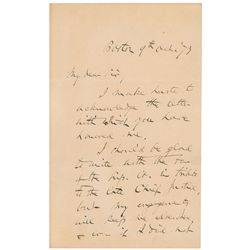 Boston 9th Oct. '73
My dear Sir,
I make haste to
acknowledge the letter
with which you have
honored me.
I should be glad
to unite with the
to the late Chief Justice,
but my engagements
will keep me
& even if I did not